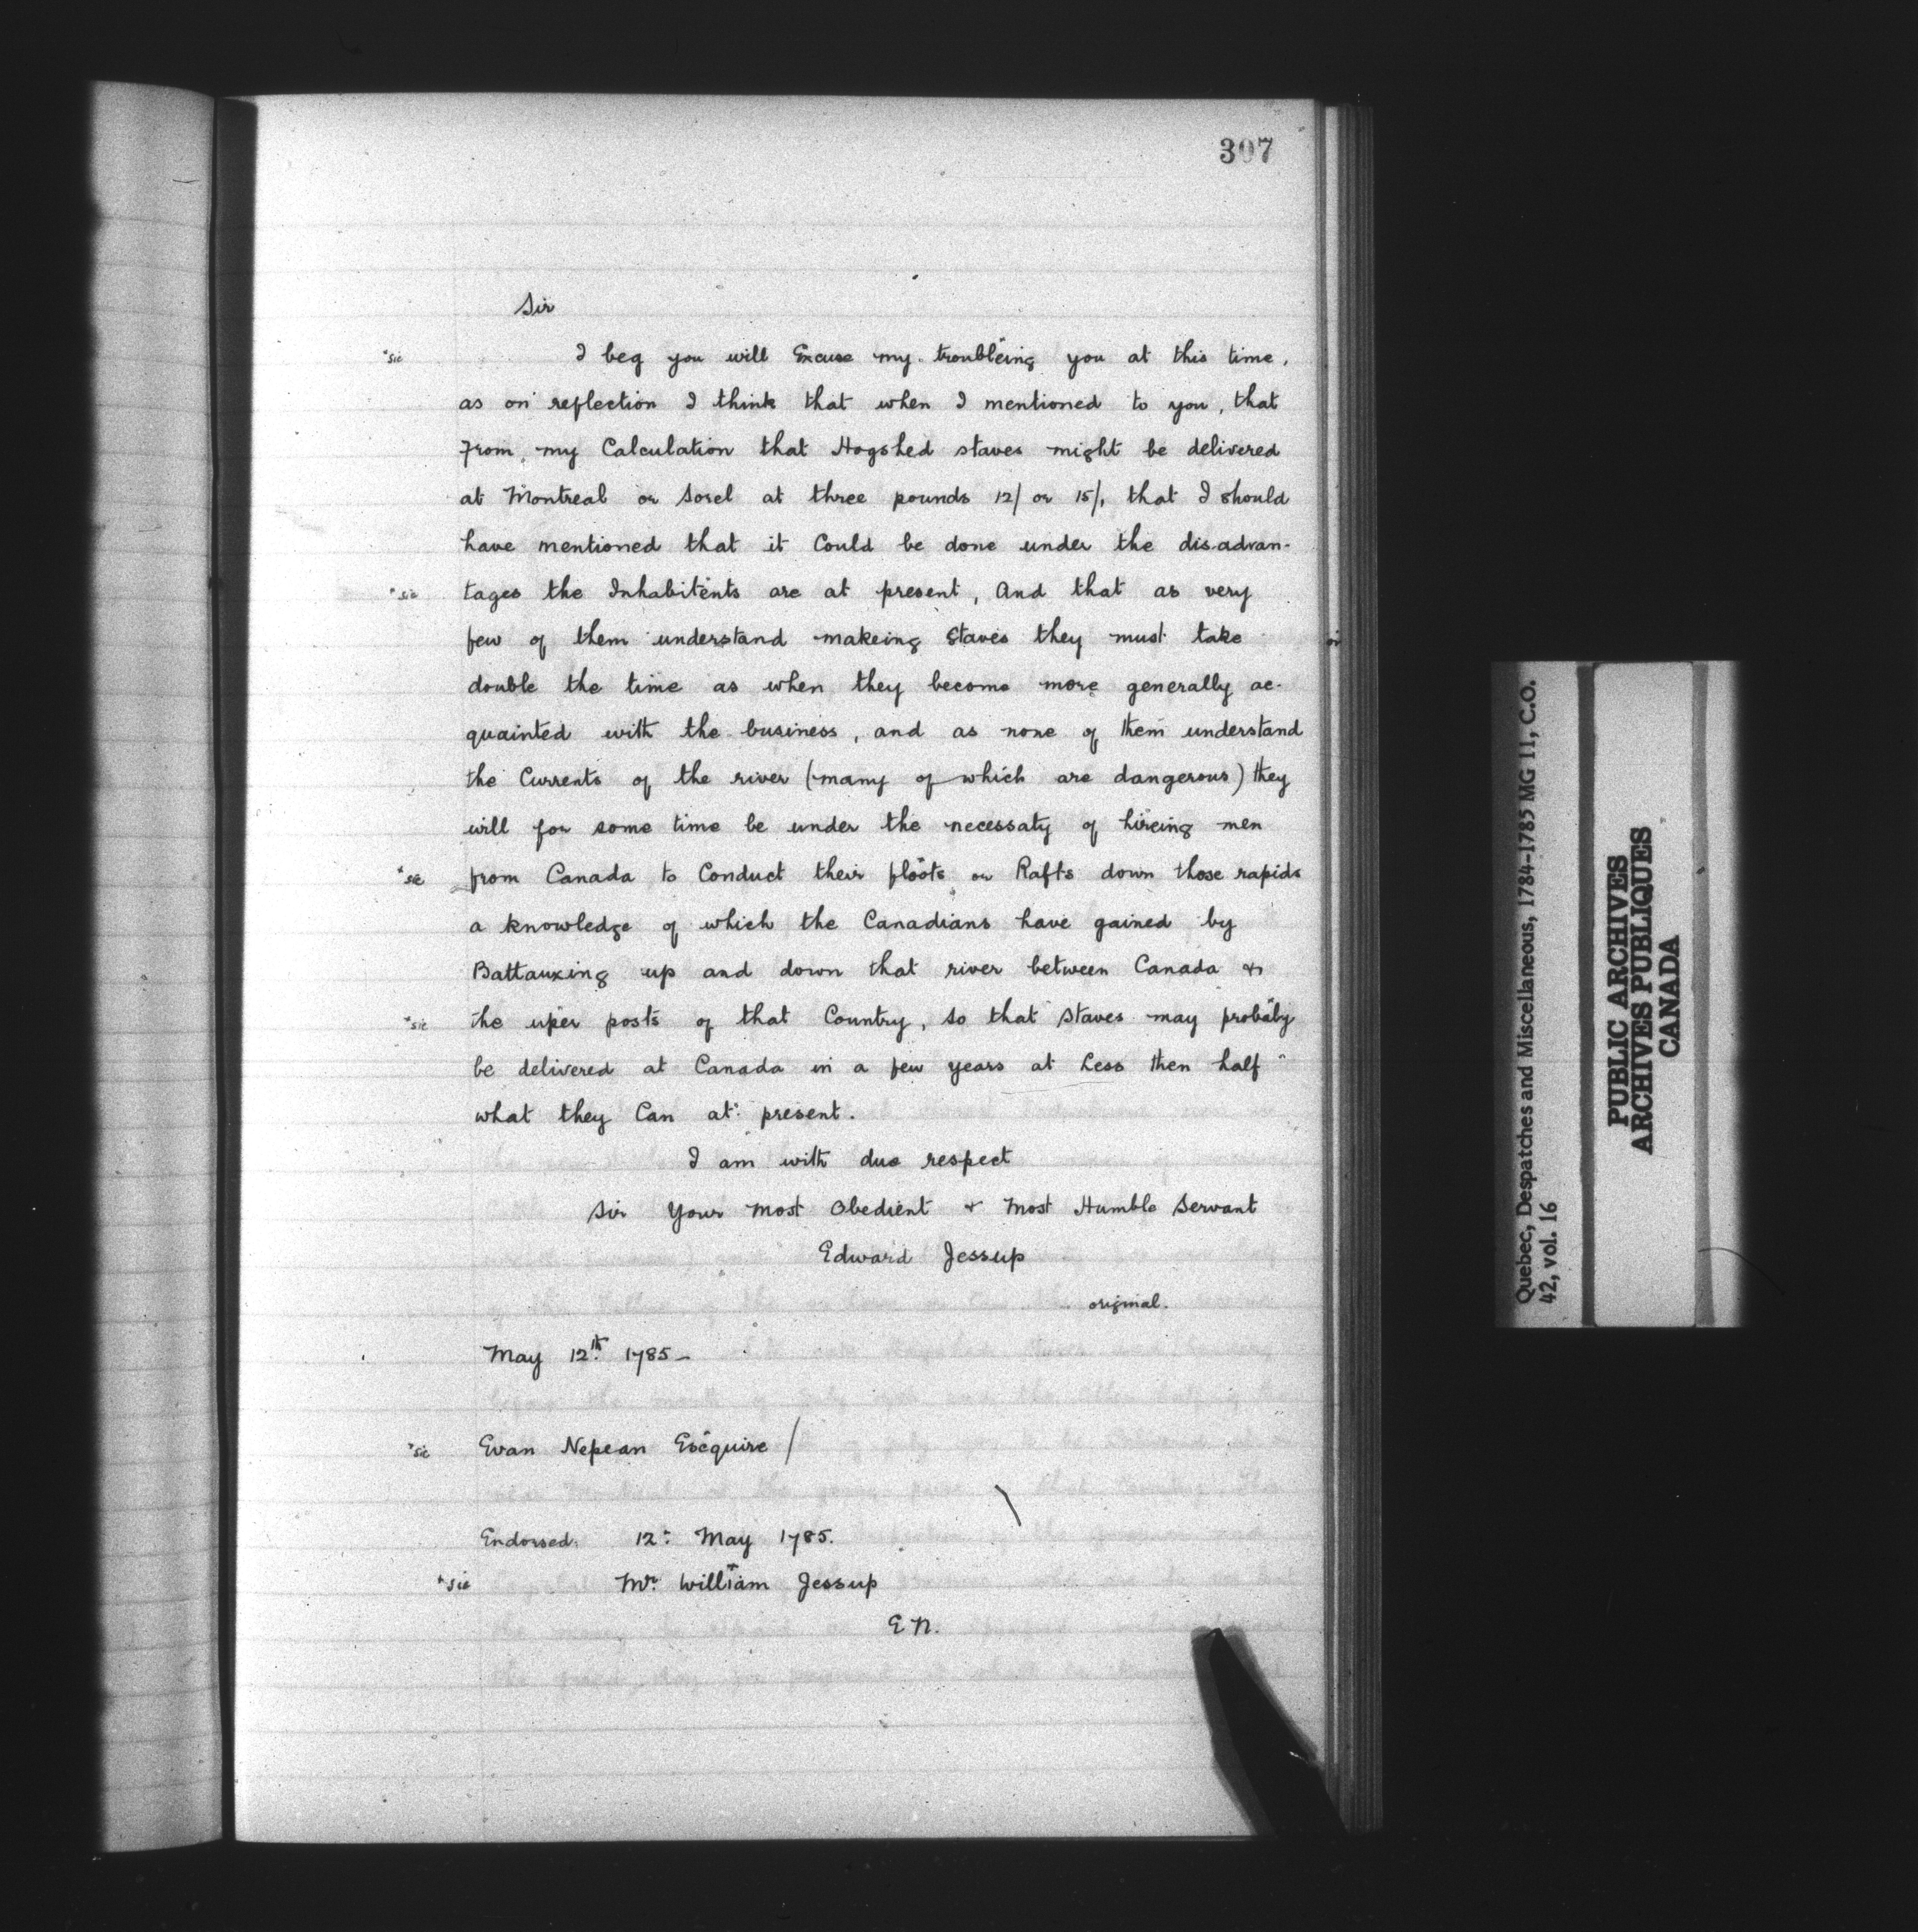 307
Sir
*sic I beg you will Excuse my troubleing you at this time,
as on reflection I think that when I mentioned to you, that
From my Calculation that Hogshed staves might be delivered
at Montreal or Sorel at three pounds 12/ or 15/, that I should
have mentioned that it Could be done under the dis-advan-
*sic tages the Inhabitents are at present, And that as very
few of them understand makeing Staves they must take
double the time as when they become more generally ac-
quainted with the business, and as none of them understand
the Currents of the river (many of which are dangerous) they
will for some time be under the necessaty of hireing men
*sic from Canada to Conduct their floots or Rafts down those rapids
a knowledge of which the Canadians have gained by
Battauxing up and down that river between Canada &
*sic the uper posts of that Country, so that Staves may probaly
be delivered at Canada in a few years at Less then half
what they Can at present.
I am with due respect
Sir Your Most Obedient & Most Humble Servant
Edward Jessup
original.
May 12th 1785_
*sic Evan Nepean Esequire /
Endorsed. 12: May 1785.
*sic Mr. William Jessup
E N.
Quebec, Despatches and Miscellaneous, 1784-1785 MG 11, C.O.
42, vol. 16
PUBLIC ARCHIVES
ARCHIVES PUBLIQUES
CANADA